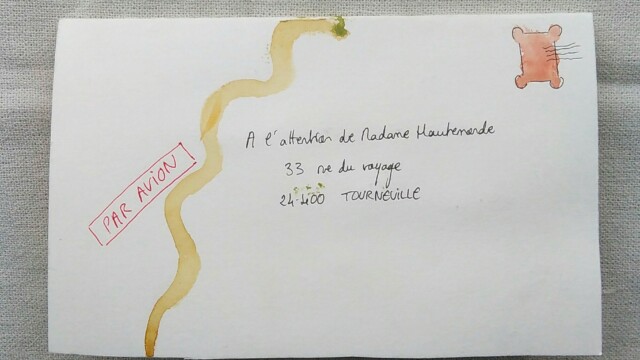 A l'attention de Madame Hautemonde
33 rue du voyage
24400 TOURNEVILLE
PAR AVION